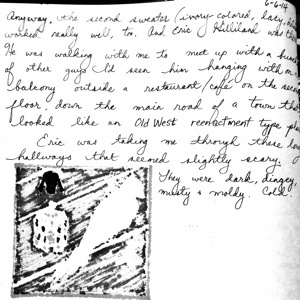 6-6-14
Anyway, the second sweater (ivory-colored, lacy, h
worked really well, too. And Eric Hilliland was the
He was walking with me to meet up with a bunch
of other guys I'd seen him hanging with on
balcony outside a restaurant/cafe on the second
floor, down the main road of a town tha
looked like an Old West reenactment type pl
Eric was taking me through these lo
hallways that seemed slightly scary, a
They were dark, dingey
musty & moldy. Cold.